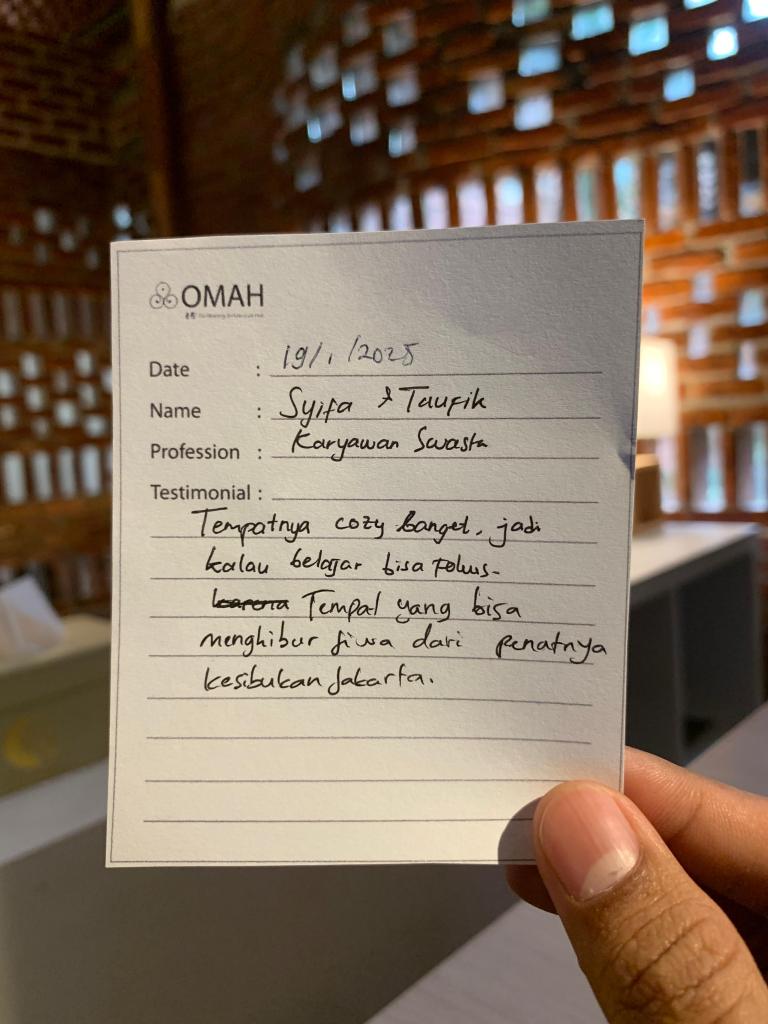 OMAH
Date : 19/1/2025
Name : Syifa & Taufik
Profession : Karyawan Swasta
Testimonial :
Tempatnya cozy banget, jadi
kalau belajar bisa fokus.
karena Tempat yang bisa
menghibur jiwa dari penatnya
kesibukan Jakarta.